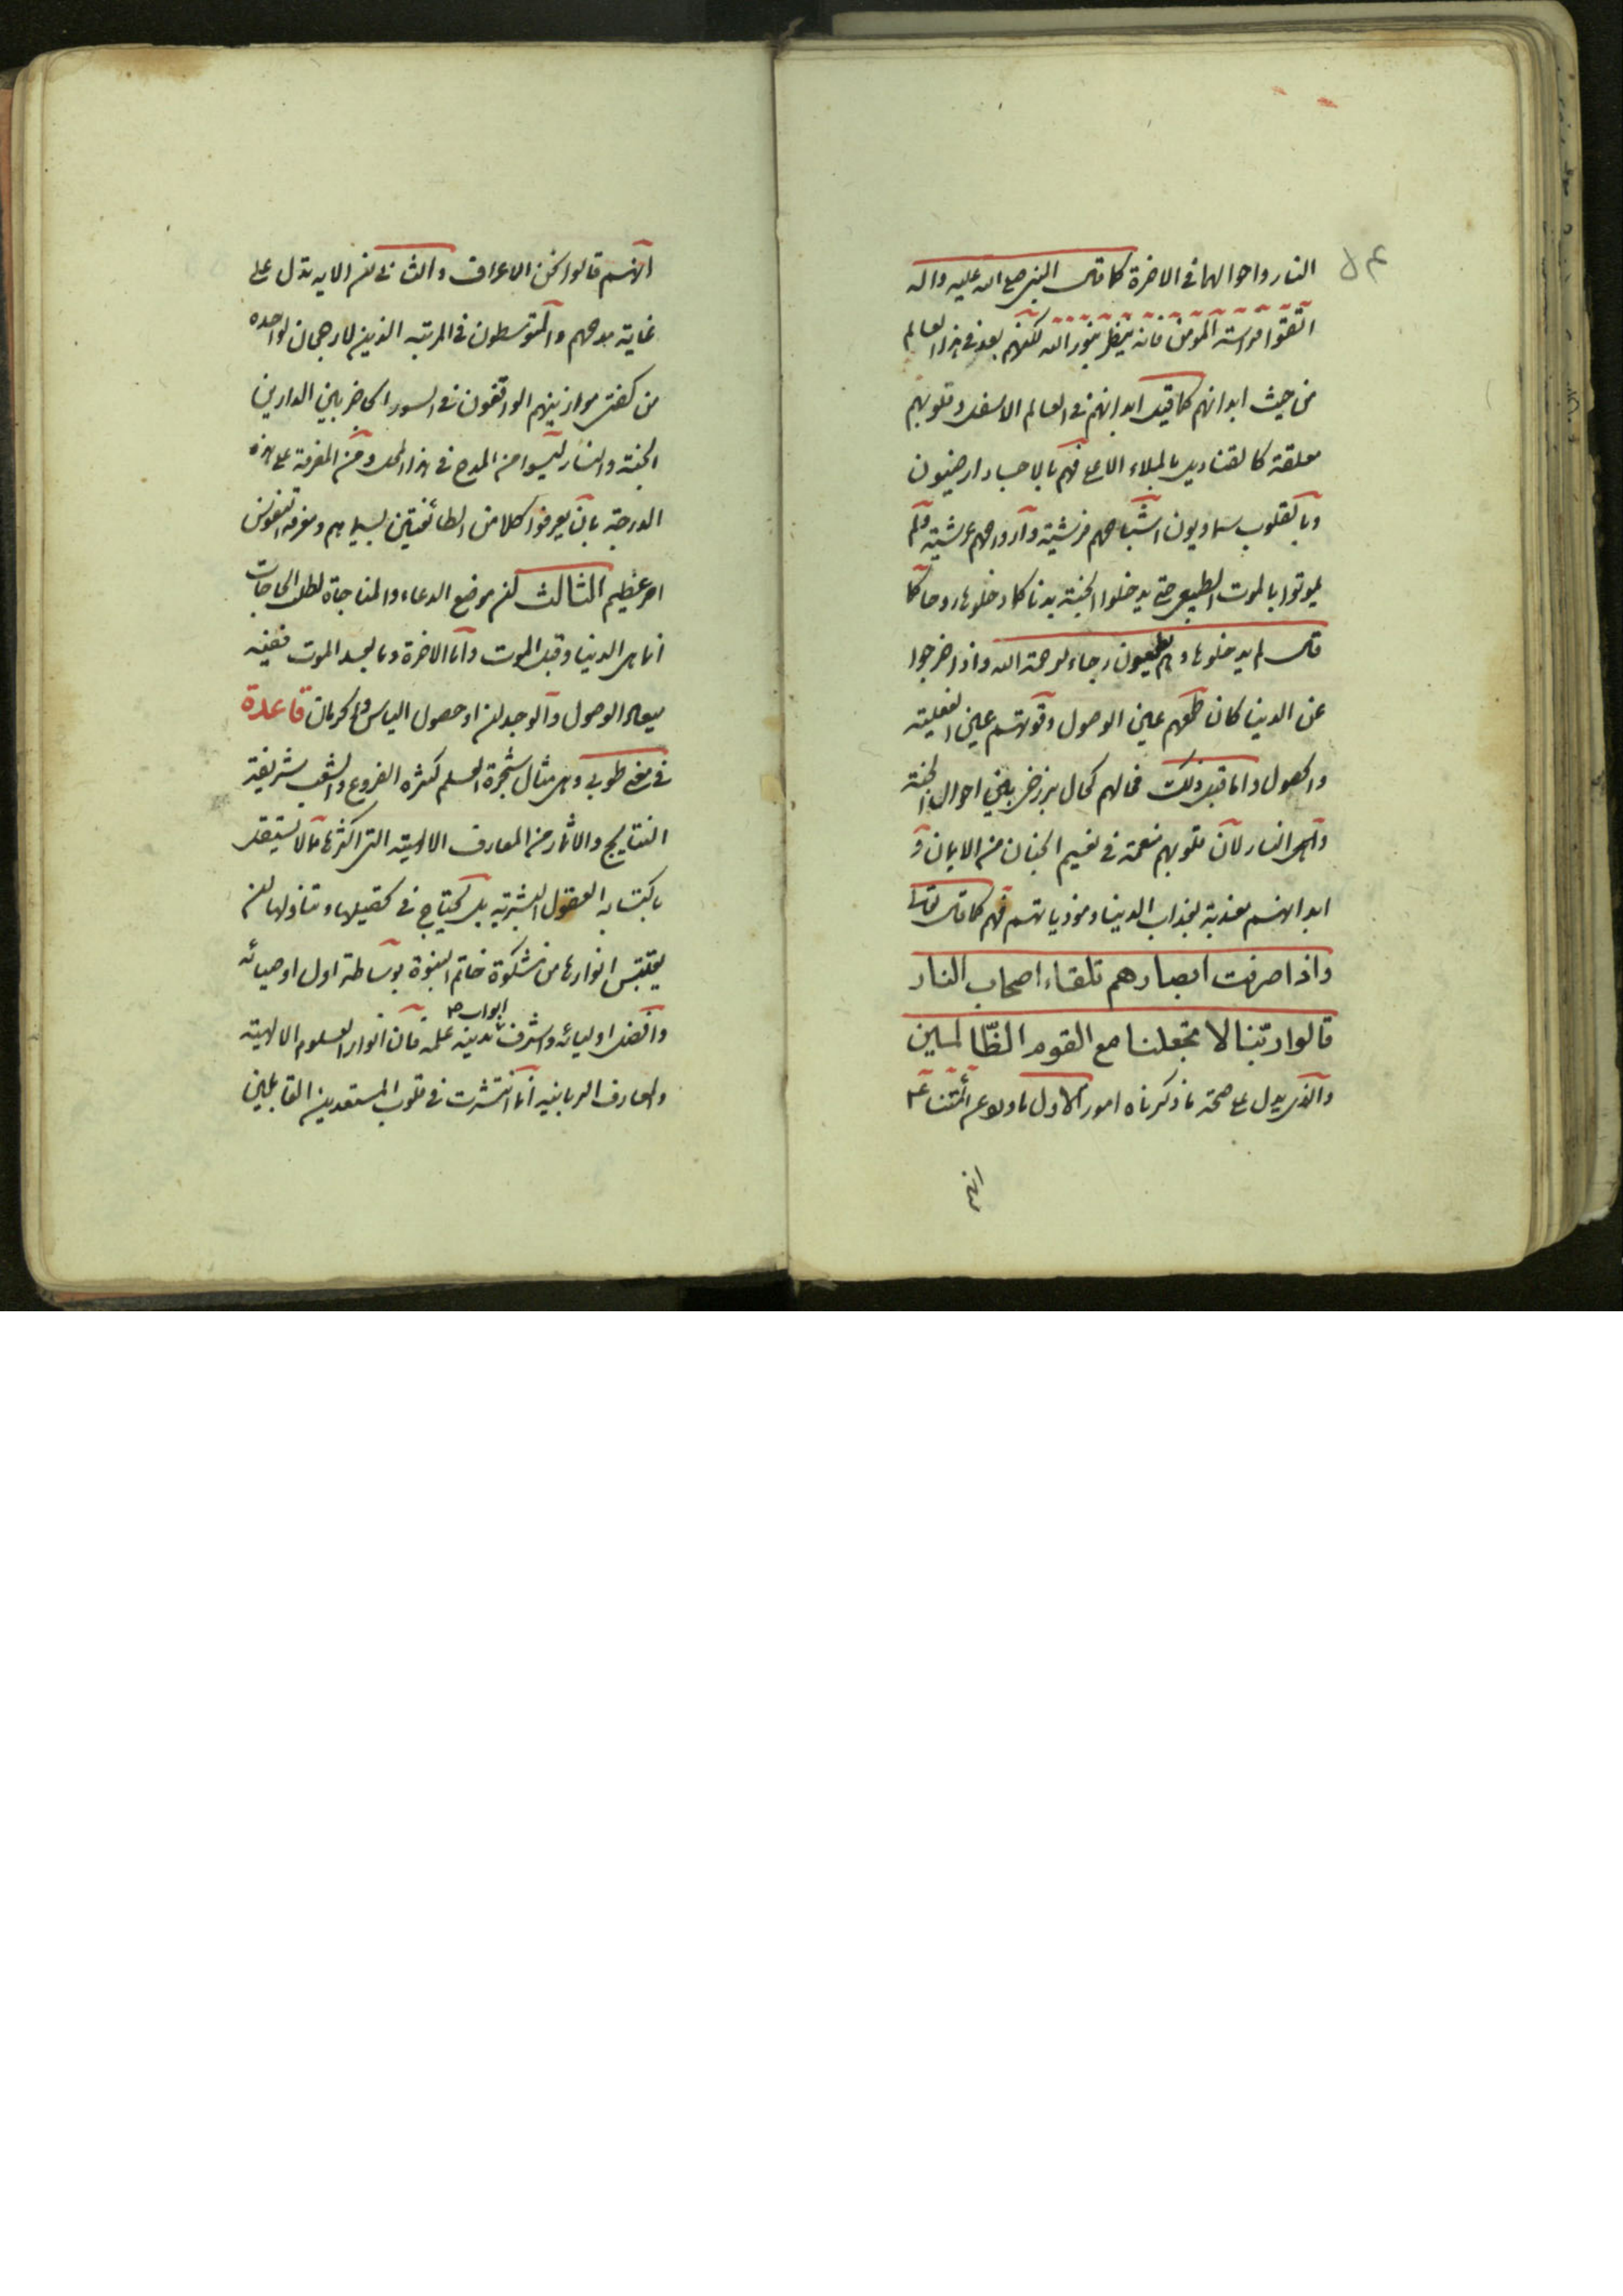 النار واحوالهما فى الاخرة كما قال النبى صلى الله عليه واله
اتقوا فراسة المومن فانه ينظر بنور الله لكنهم بعد فى هذا العالم
من حيث ابدانهم كما قيل ابدانهم فى العالم الاسفل وقلوبهم
معلقة كالقناديل بالملاء الاعلى فهم بالاجساد ارضيون
وبالقلوب سماويون اشباحهم فرشية وارواحهم عرشية ولم
يموتوا بالموت الطبيعى حتى يدخلوا الجنة بدنا كما دخلوها روحا كما
قال لم يدخلوها وهم يطمعون رجاء لرحمة الله واذا خرجوا
عن الدنيا كان طمعهم عين الوصول وقوتهم عين الفعلية
والحصول واما قبل ذلك فحالهم كحال برزخ بين احوال اهل الجنة
واهل النار لان قلوبهم منعمة فى نعيم الجنان من الايمان و
ابدانهم معذبة بعذاب الدنيا وموذياتهم فهم كما قال تعالى
واذا صرفت ابصارهم تلقاء اصحاب النار
قالوا ربنا لا تجعلنا مع القوم الظالمين
والذى يدل على صحة ما ذكرناه امور الاول ما روى عن ائمتنا ع
انهم
انهم قالوا نحن الاعراف والثانى ان الايه تدل على
غاية مدحهم والمتوسطون فى المرتبه الذين لا رجحان لواحده
من كفتى موازينهم الواقفون فى السور الحاجز بين الدارين
الجنة والنار ليسوا من المدح فى هذا المحل ومن المعرفة على هذه
الدرجة بان يعرفوا كلا من الطائفتين بسيماهم ومعرفة النفوس
امر عظيم الثالث ان موضع الدعاء والمناجاة لطلب الحاجات
انما هى الدنيا وقبل الموت واما الاخرة وما بعد الموت ففيه
ميعاد الوصول والوجدان او حصول الياس والحرمان قاعدة
فى معنى طوبى وهى مثال شجرة العلم كثيره الفروع والشعب شريفة
النتايج والاثمار من المعارف الالهية التى اكثرها مما لا تستقل
باكتسابه العقول البشرية بل يحتاج فى تحصيلها وتناولها لان
يقتبس انوارها من مشكوة خاتم النبوة بوساطة اول اوصيائه
وافضل اوليائه واشرف ابواب مدينة علمه فان انوار العلوم الالهية
والمعارف الربانيه انما انتشرت فى قلوب المستعدين القابلين